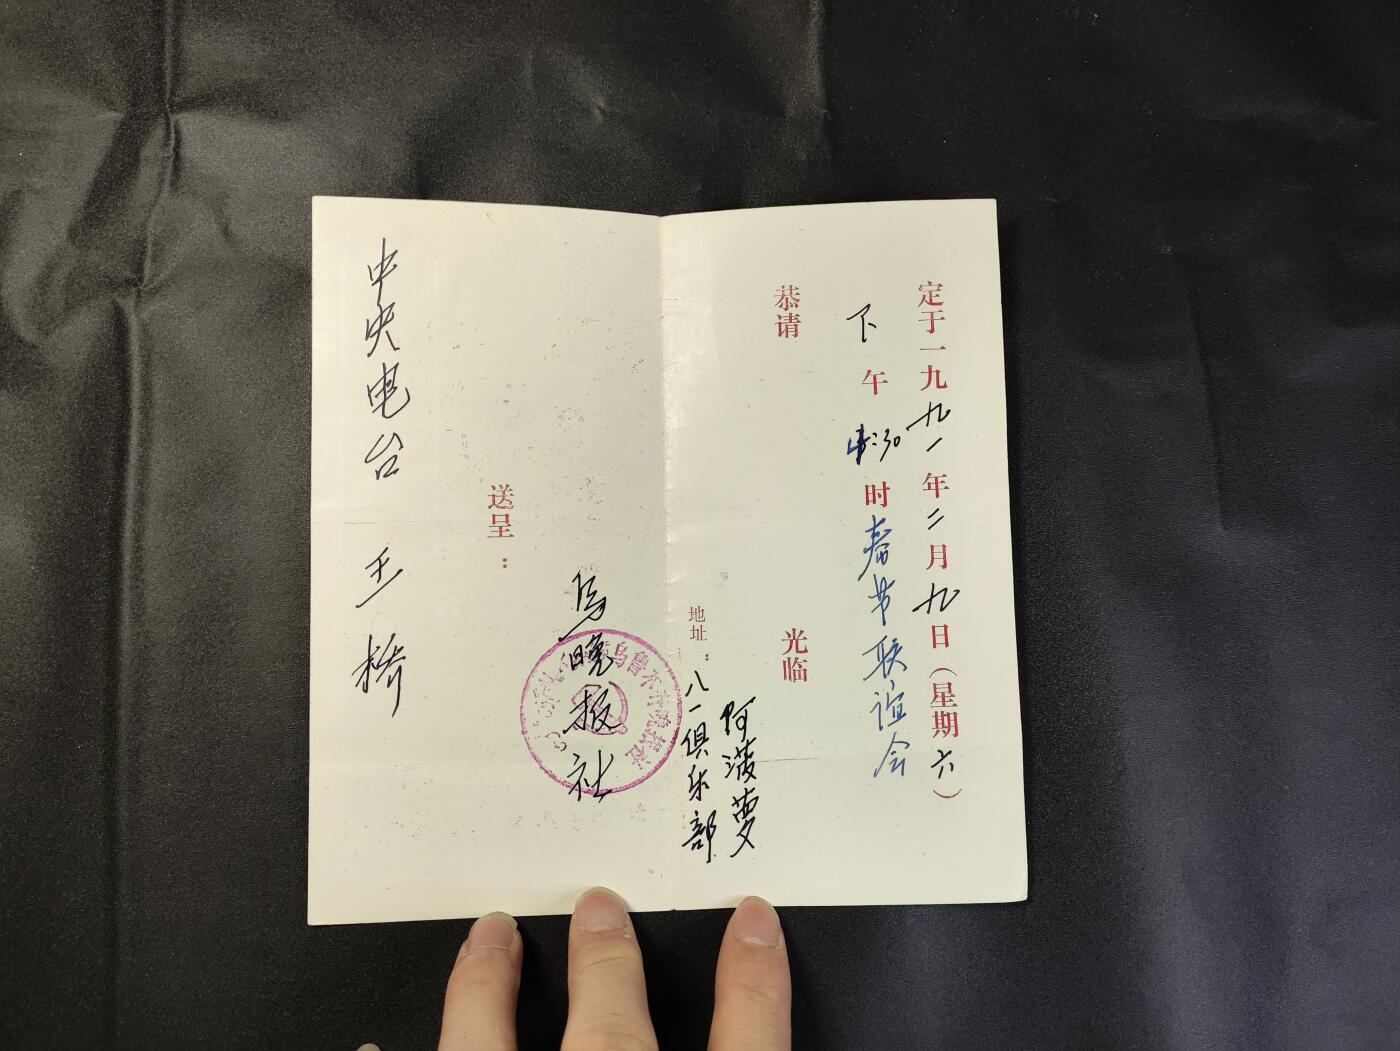 定于一九九一年二月九日(星期六)
下午4:30时春节联谊会
恭请 光临
阿菠萝
地址:八一俱乐部
乌晚报社
乌鲁木齐晚报社
送呈:
中央电台 王椅